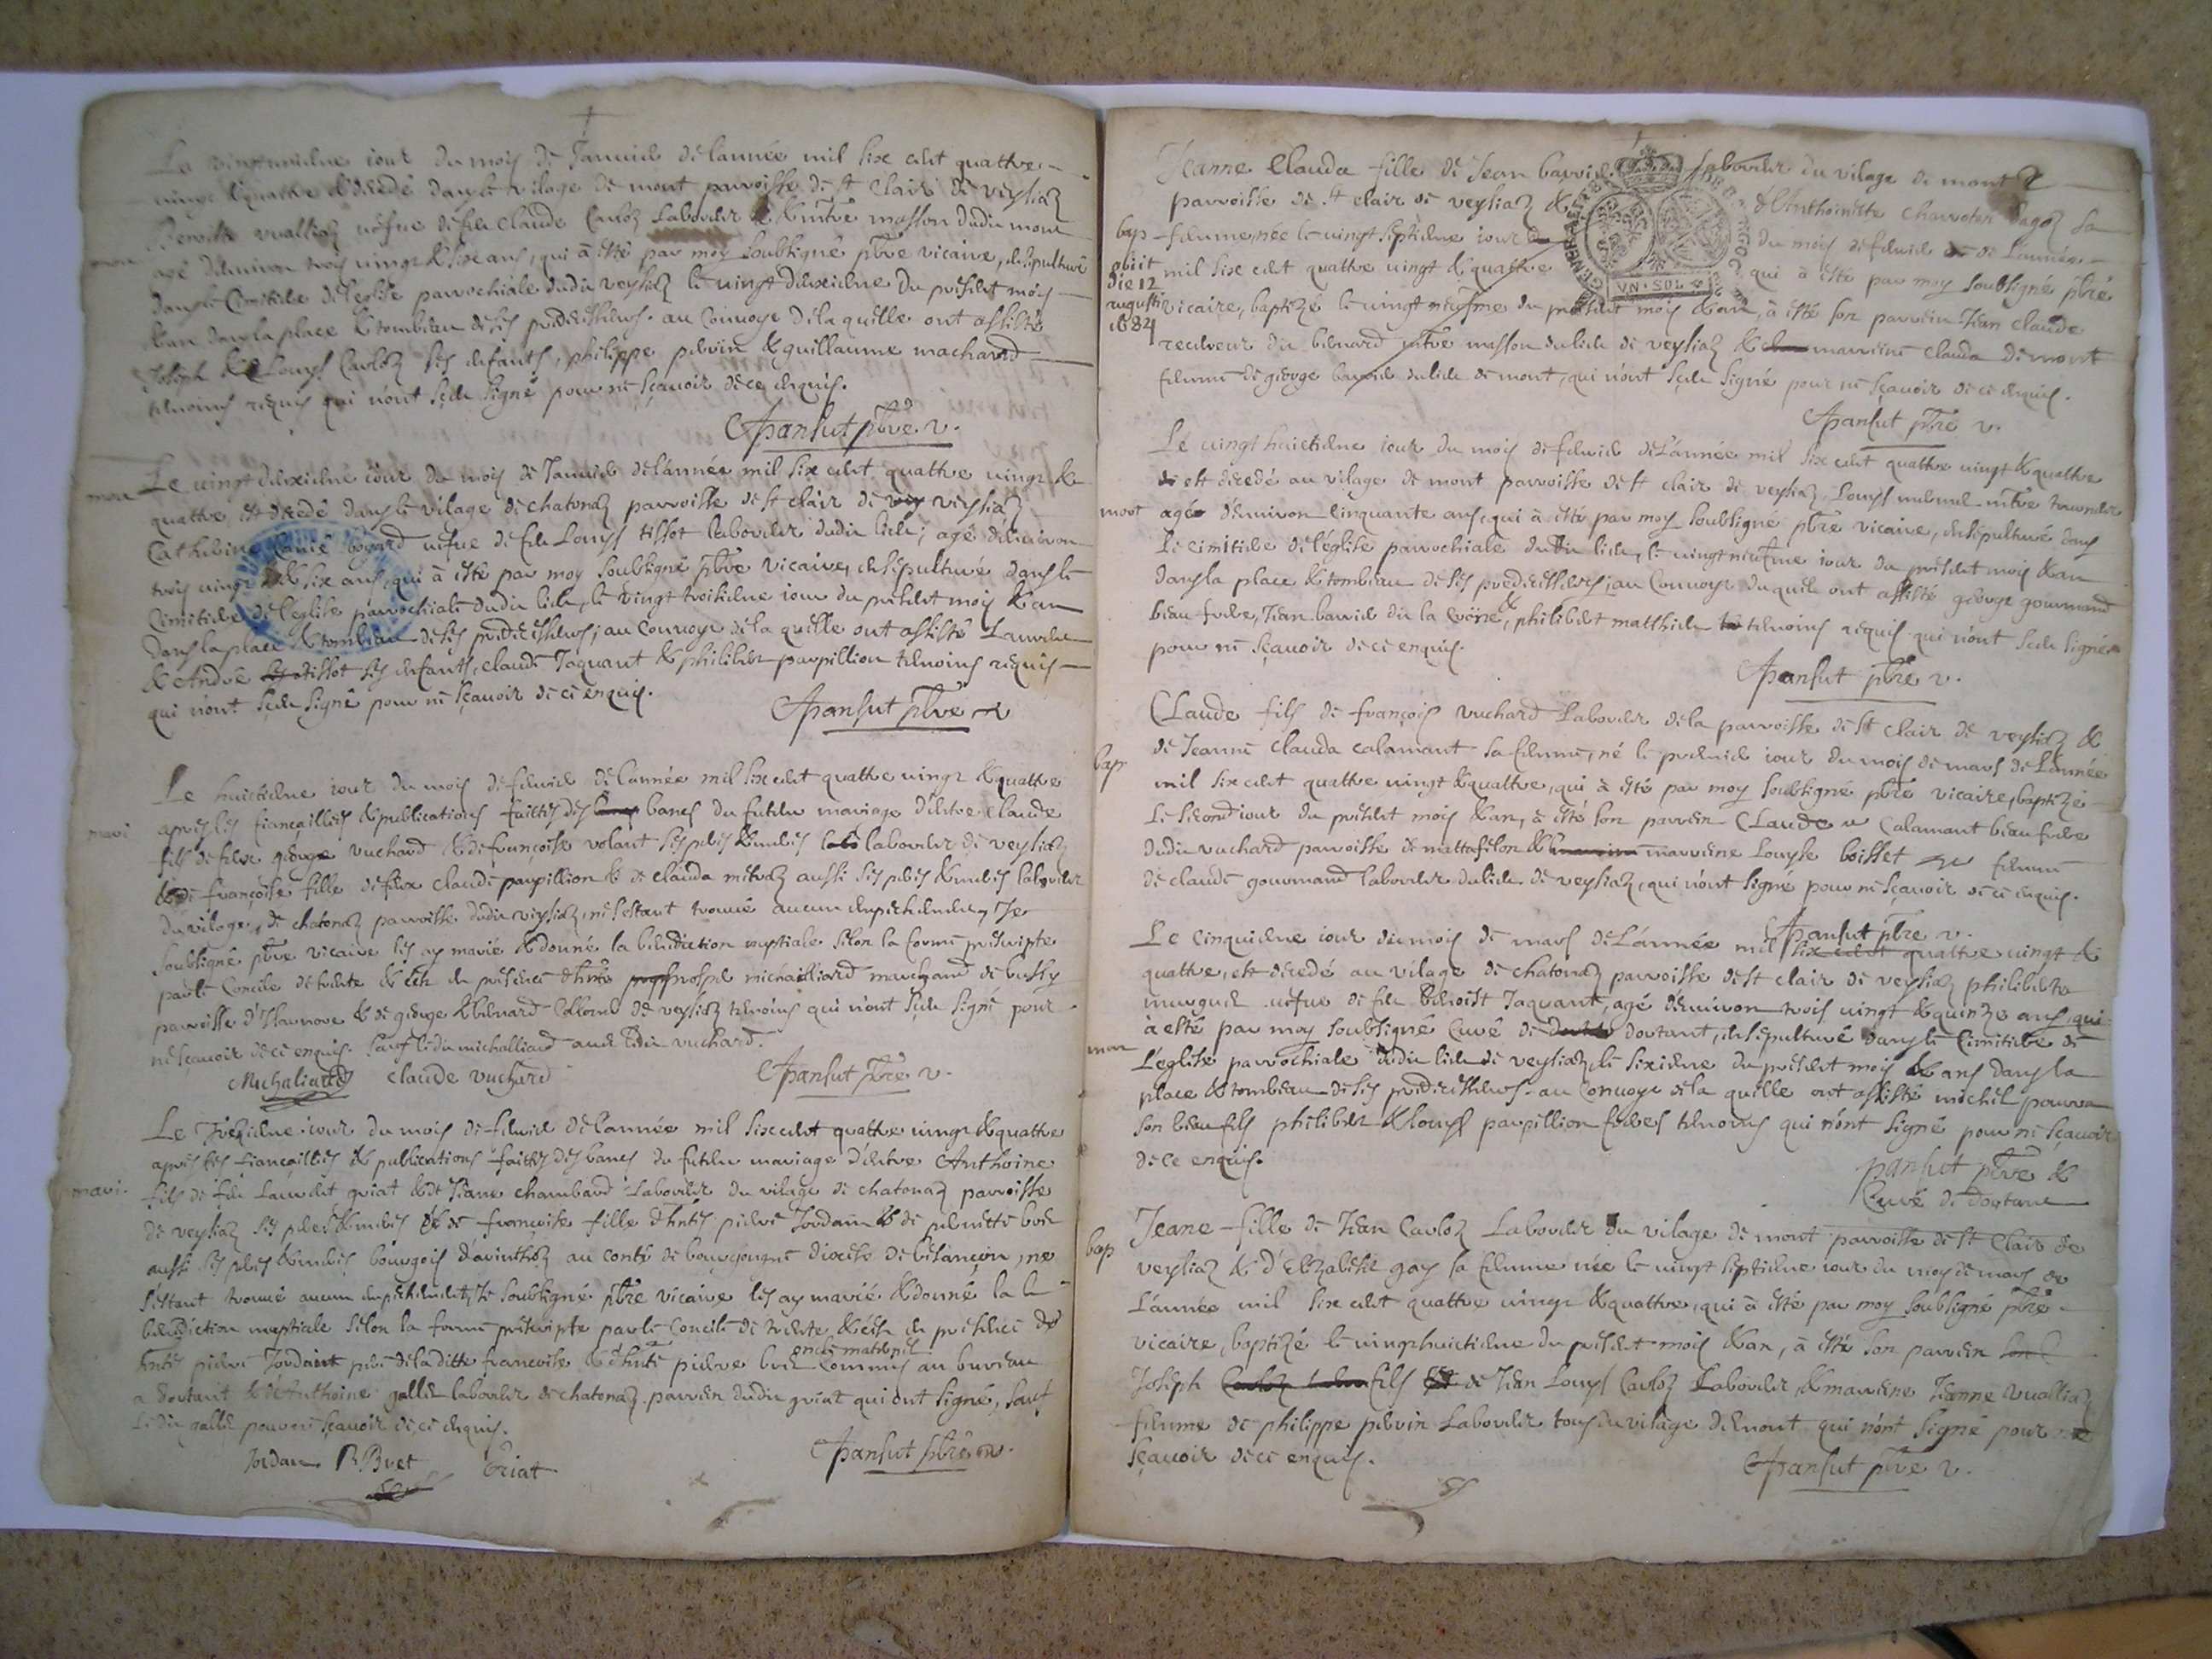 Le vingtunieme iour du mois de Januier de lannée mil six cent quattre
vingt & quattre decedé dans le vilage de mont parroisse de st clair de veysiaz
Benoiste vualliaz uefue de feu Claude Carloz Laboureur & mtre masson dudit mont
mou agé denuiron trois vingt & six ans, qui à esté par moy soubsigné ptre vicaire, ensepulturé
dans le Cimitiere de leglise parrochiale dudit veysiaz le vingt deuxieme du present mois
& an dans la place & tombeau de ses predecesseurs. au Conuoye de la quelle ont assisté
Joseph & Louys Carloz ses enfants, philippe perrin & guillaume machard
temoins requis qui n'ont sceu signé pour ne sçauoir de ce enquis.
pansut ptre v.
mou Le vingt deuxieme iour du mois de Januier de lánnée mil six cent quattre vingt &
quattre est decedé dans le vilage de chatonaz parroisse de st clair de vey veysiaz
Catherine bogard uefue de feu Louys tissot laboureur dudit lieu; agé denuiron
trois vingt & six ans, qui à esté par moy soubsigné ptre vicaire, ensepulturé dans le
Cimitiere de leglise parrochiale dudit lieu, le vingt troisieme iour du present mois & an
dans la place & tombeau de ses predecesseurs; au Conuoye de la quelle ont assisté Laurent
& Andre tissot ses enfants, claude Jaquant & philibert parpillion temoins requis
qui n'ont sceu signé pour ne sçauoir de ce enquis.
pansut ptre v
Le huictieme iour du mois de feurier de lánnée mil six cent quattre vingt & quattre
apres les fiancailles & publications faictes des bans du futur mariage d'entre Claude
mari fils de feux george vuchard & de francoise volant ses peres & meres laboureur de veysiaz
& de francoise fille de feux claude parpillion & de clauda aussi ses peres & meres laboureur
du vilage, de chatonaz parroisse dudit veysiaz, ne sestant trouué aucun empechement, Je
soubsigné ptre vicaire les ay marié & donné la benediction nuptiale selon la forme prescripte
par le Concile de trente & ce en presence d'hnte prosper michailliard marchand de bussy
parroisse d'Isarnore & de george & bernard Collomb de veysiaz temoins qui n'ont sceu signé pour
ne sçauoir de ce enquis. sauf ledit michalliard auec ledit vuchard.
Michaliard claude vuchard pansut ptre v.
Le iour du mois de feurier de lannée mil six cent quattre vingt & quattre
apres les fiancailles & publications faittes des bans du futur mariage d'entre Anthoine
mari. fils de feu Laurent griat & de Jeane chambard Laboureur du vilage de chatonaz parroisse
de veysiaz ses peres & meres & de francoise fille d'hntes pierre Jordain & de pernette bret
aussi ses peres & meres bourgois d'arinthoz au conté de bourgougne diocese de besançon, ne
s'estant trouué aucun empechement, Je soubsigné ptre vicaire les ay marié & donné la
benediction nuptiale selon la forme prescripte par le Concile de trente & ce en presence de
oncle maternel
hntes pierre Jordain pere de la ditte francoise & d'hnte pierre bret Commis au bureau
a dortant & d'Anthoine gallet laboureur de chatonaz parrein dudit griat qui ont signé, sauf
Ledit gallet pour ne sçauoir de ce enquis.
Jordain P. Bret Griat pansut ptre v.
Jeanne Clauda fille de Jean barrié laboureur du vilage de mont
parroisse de st clair de veysiaz & d'Anthoinette charroton dagoz sa
bap femme, née le vingt septieme iour du mois de feurier de Lannée
obiit mil six cent quattre vingt & quattre qui à esté par moy soubsigné ptre
die 12
augusti vicaire, baptizé le vingt neufme du present mois & an, à esté son parrein Jean claude
1684 receueur dit bernard mtre masson du lieu de veysiaz & marreine Clauda demont
femme de george barrié du lieu de mont, qui n'ont sceu signé pour ne sçauoir de ce enquis.
UN·SOL
pansut ptre v.
Le vingt huictieme iour du mois de feurier de Lánnée mil six cent quattre vingt & quattre
est decedé au vilage de mont parroisse de st clair de veysiaz Louys mtre
mort agé d'enuiron cinquante ans, qui à esté par moy soubsigné ptre vicaire, ensepulturé dans
le cimitiere de l'église parrochiale dudit lieu, le vingt neufme iour du present mois & an
dans la place & tombeau de ses predecesseurs; au Conuoye du quel ont assisté george gourmand
beau frere, Jean barrié dit la & philibert matthieu temoins requis qui n'ont sceu signé
pour ne sçauoir de ce enquis.
pansut ptre v.
Claude fils de françois vuchard Laboureur de la parroisse de st clair de veysiaz &
bap de Jeanne clauda calamant sa femme, né le premier iour du mois de mars de Lánnée
mil six cent quattre vingt & quattre, qui à esté par moy soubsigné ptre vicaire, baptizé
le second iour du present mois & an, à esté son parrein Claude Calamant beau frere
dudit vuchard parroisse de mattafelon & marreine Louyse boisset femme
de claude gourmand laboureur du lieu de veysiaz, qui n'ont signé pour ne sçauoir de ce enquis.
pansut ptre v.
Le cinquieme iour du mois de mars de Lánnée mil six cent quattre vingt &
quattre, est decedé au vilage de chatonaz parroisse de st clair de veysiaz philiberte
uefue de feu benoist Jaquant, agé denuiron trois vingt & quinze ans, qui
à esté par moy soubsigné Curé de dortant, ensepulturé dans le Cimitiere de
mou L'eglise parrochiale dudit lieu de veysiaz, le sixieme du present mois & ans dans la
place & tombeau de ses predecesseurs. au Conuoye de la quelle ont assisté michel
son beau fils philibert & louys parpillion freres temoins qui n'ont signé pour ne sçauoir
de ce enquis.
pansut ptre &
Curé de dortant
Jeane fille de Jean Carloz Laboureur du vilage de mont parroisse de st Clair de
bap veysiaz & d'Elizabeth gay sa femme née le vingt septieme iour du moys de mars de
Lánnée mil six cent quattre vingt & quattre, qui à esté par moy soubsigné ptre
vicaire, baptizé le vingthuictieme du present mois & an, à esté son parrein
Joseph fils de Jean Louys Carloz Laboureur, & marreine Jeanne vualliaz
femme de philippe perrin Laboureur tous du vilage de mont qui n'ont signé pour ne
sçauoir de ce enquis.
pansut ptre v.